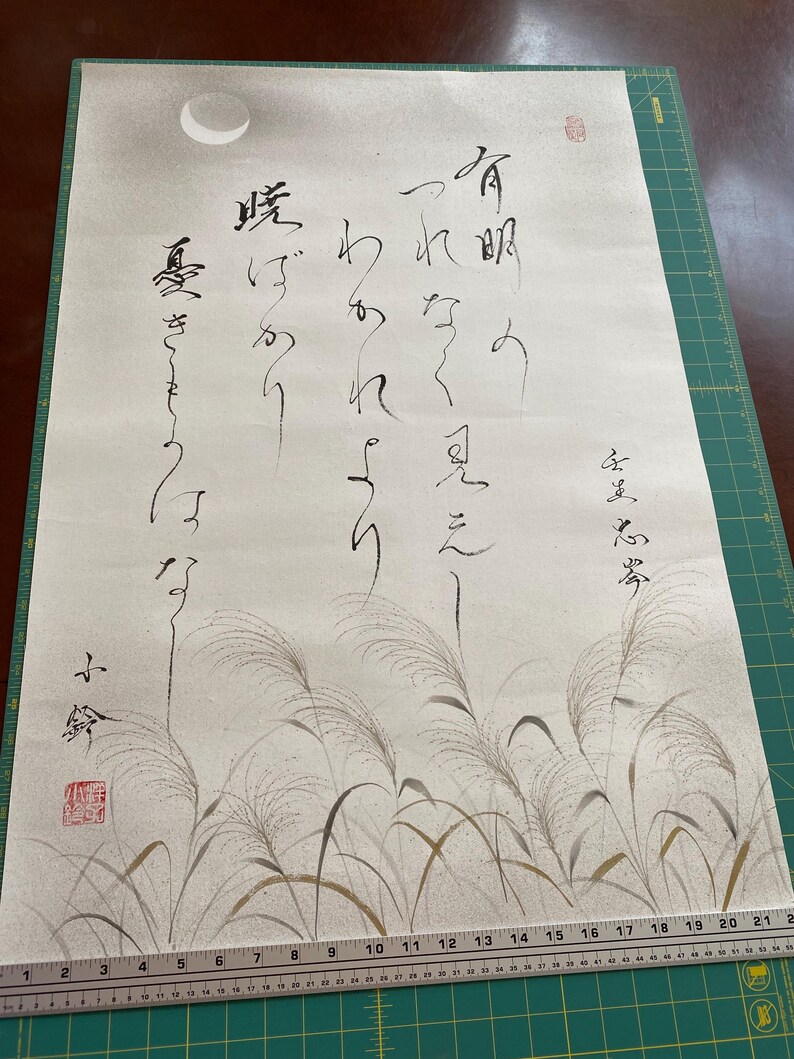 壬生忠岑
有明の
つれなく見えし
わかれより
暁ばかり
憂きものはなし
小鈴
小鈴
1 2 3 4 5 6 7 8 9 10 11 12 13 14 15 16 17 18 19 20 21